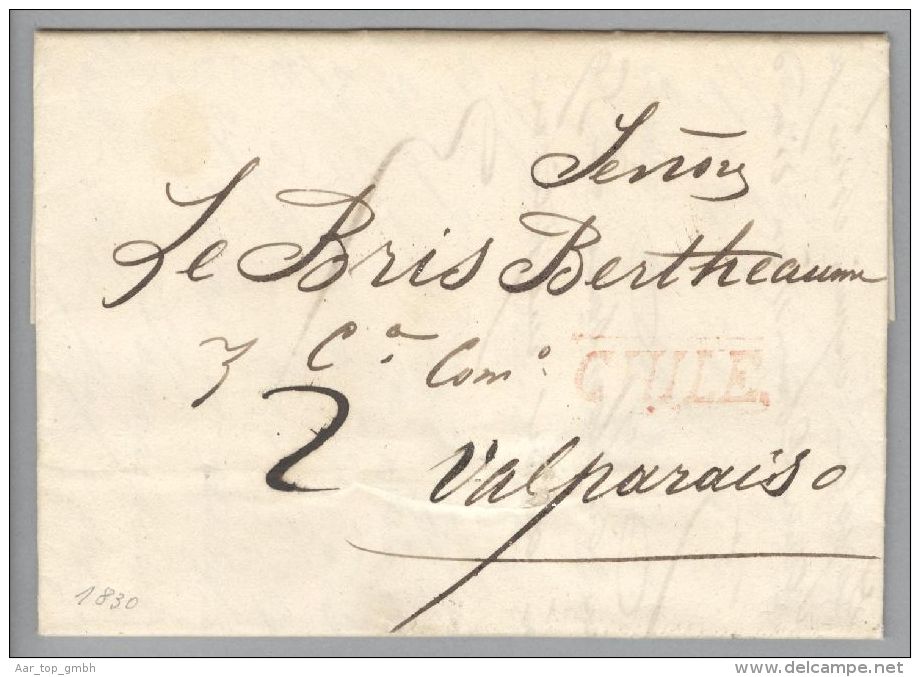 Señores
Le Bris Bertheaume
y C.ª Com.º
CHILE
2
Valparaiso
1830
Aar_top_gmbh
www.delcampe.net